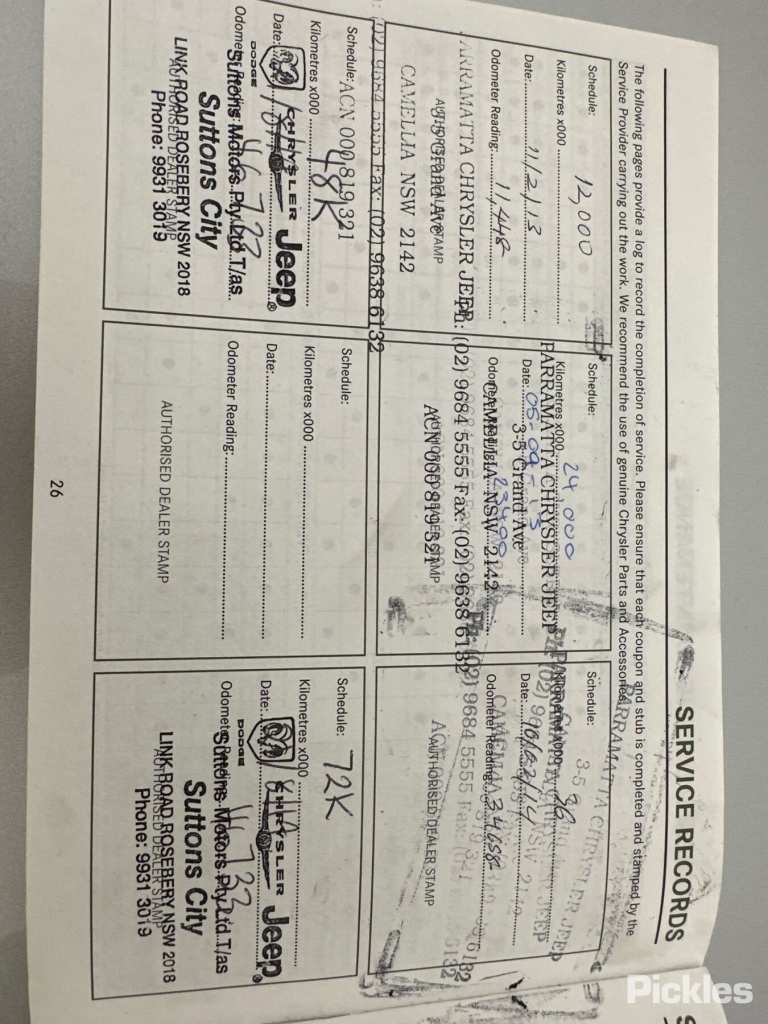 SERVICE RECORDS
The following pages provide a log to record the completion of service. Please ensure that each coupon and stub is completed and stamped by the
Service Provider carrying out the work. We recommend the use of genuine Chrysler Parts and Accessories.
Schedule: 12,000
Kilometres x000
Date: 11/2/13
Odometer Reading: 11,448
PARRAMATTA CHRYSLER JEEP
3-5 Grand Ave
AUTHORISED DEALER STAMP
CAMELLIA NSW 2142
Ph: (02) 9684 5555 Fax: (02) 9638 6132
ACN 000 819 321
Schedule:
Kilometres x000 24,000
PARRAMATTA CHRYSLER JEEP
Date: 05-09-13
3-5 Grand Ave
Odometer Reading: 23400
CAMELLIA NSW 2142
Ph: (02) 9684 5555 Fax: (02) 9638 6132
ACN 000 819 321
AUTHORISED DEALER STAMP
PARRAMATTA CHRYSLER JEEP
3-5
Schedule:
Kilometres x000 36
Date: 10/02/14
NSW
Odometer Reading: 34658
(02) 9684 5555 Fax:
AUTHORISED DEALER STAMP
Schedule: 48K
Kilometres x000
Date:
DODGE CHRYSLER Jeep®
Odometer Reading: 46,722
Suttons Motors Pty Ltd T/as
Suttons City
LINK ROAD ROSEBERY NSW 2018
AUTHORISED DEALER STAMP
Phone: 9931 3019
Schedule:
Kilometres x000
Date:
Odometer Reading:
AUTHORISED DEALER STAMP
Schedule: 72K
Kilometres x000
Date:
DODGE CHRYSLER Jeep®
Odometer Reading:
Suttons Motors Pty Ltd T/as
Suttons City
LINK ROAD ROSEBERY NSW 2018
AUTHORISED DEALER STAMP
Phone: 9931 3019
26
Pickles